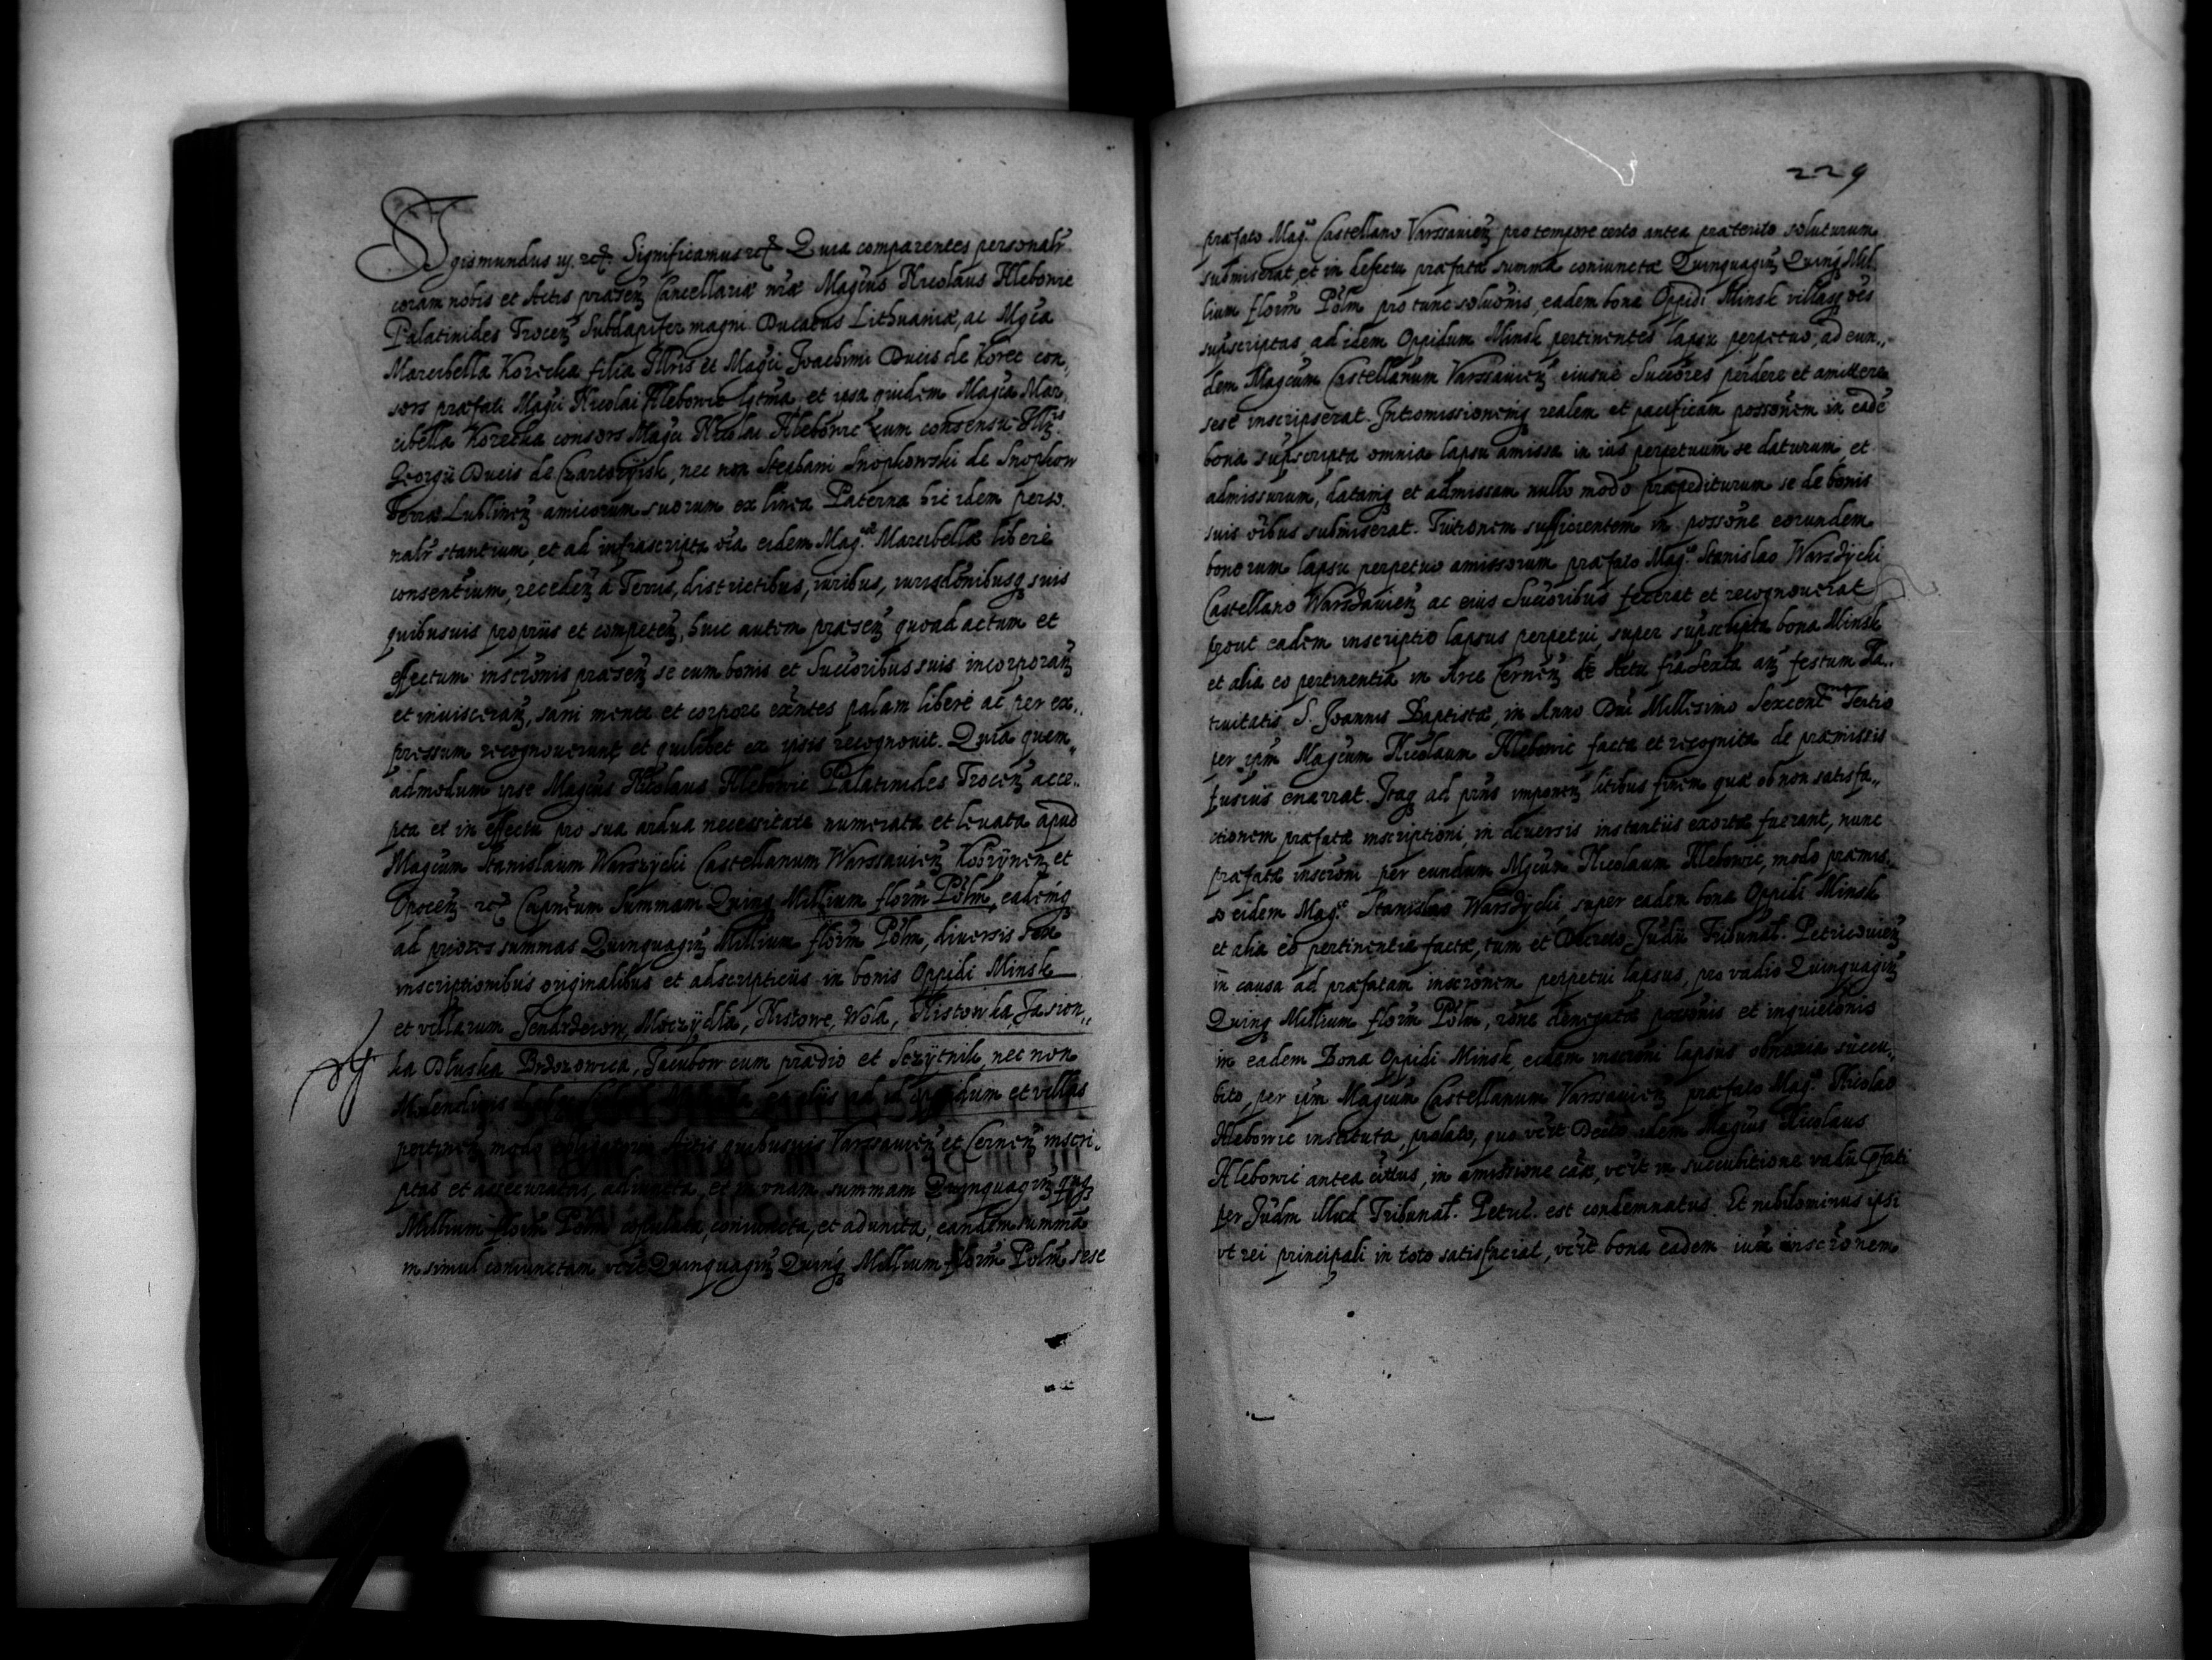 Sigismundus iij. etc. Significamus etc. Quia comparentes personalr̃
coram nobis et Actis præsen̄ Cancellariæ nr̃æ Magc̃us Nicolaus Hlebowic
Palatinides Trocen̄ Subdapifer magni Ducatus Lithuaniæ, ac Mgc̃a
Marcibella Korecka filia Illr̃is et Magc̃i Joachimi Ducis de Korec con„
sors præfati Magc̃i Nicolai Hlebowic lgtm̃a et ipsa quidem Magc̃a Mar„
cibella Korecka consors Magc̃i Nicolai Hlebowic cum consensu Ill̃is
Georgii Ducis de Czartoryisk, nec non Stephani Snopkowski de Snopkow
Terræ Lublinen̄ amicorum suorum ex linea Paterna hic idem perso„
nalr̃ stantium, et ad infrascripta oĩa eidem Mag.cæ Marcibellæ liberè
consentium, receden̄ à Terris, districtibus, iuribus, iurisdc̃onibusq̨ suis
quibusuis propriis et competen̄, huic autem præsen̄ quoad actum et
effectum inscrõnis præsen̄ se cum bonis et Succ̃oribus suis incorporan̄
et inuisceran̄, sani mente et corpore exñtes palam liberè ac per ex„
pressum recognouerunt et quilibet ex ipsis recognouit. Quia quem„
admodum ipse Magc̃us Nicolaus Hlebowic Palatinides Trocen̄ acce„
pta et in effectu pro sua ardua necessitate numerata et leuata apud
Magc̃um Stanislaum Warszycki Castellanum Warssauien̄ Kobrynen̄ et
Opocen̄ etc. Capneum Summam Quinq̨ Millium flor̃m Pol̃m, eademq̨
ad priores summas Quinquagin̄ Millium flor̃m Pol̃m, diuersis
inscriptionibus originalibus et adscripticiis in bonis Oppidi Minsk
et villarum Jendrzeiow, Moczydła, Kistowe, Wola, Kistowka, Jasion„
ka Dłuska Brzozowica, Jacubow cum prædio et Sczytnik, nec non
Molendinis et aliis ad id oppidum et villas
pertinen̄ modo obligatorio Actis quibusuis Varssauien̄ et Cernen̄ inscri„
ptas et assecuratas, adiuncta, et in vnam summam Quinquagin̄ quinq̨
Millium flor̃m Pol̃m copulata, coniuncta, et adunita, eandem summã
insimul coniunctam vel̃t Quinquagin̄ Quinq̨ Millium flor̃m Pol̃m sese
229
præfato Mag.co Castellano Varssauien̄ pro tempore certo antea præterito soluturum
submiserat, et in defectu præfatæ summæ coniunctæ Quinquagin̄ Quinq̨ Mil„
lium flor̃m Pol̃m pro tunc soluõnis, eadem bona Oppidi Minsk villasq̨ oẽs
supscriptas, ad idem Oppidum Minsk pertinentes lapsu perpetuo, ad eun„
dem Magc̃um Castellanum Varssauien̄ eiusuè Succ̃ores perdere et amittere
sesè inscripserat. Intromissionemq̨ realem et pacificam possõnem in eadẽ
bona supscripta omnia lapsu amissa in ius perpetuum se daturum et
admissurum, datamq̨ et admissam nullo modo præpediturum se de bonis
suis oĩbus submiserat. Tuitionem sufficientem in possõne eorundem
bonorum lapsu perpetuo amissorum præfato Mag.co Stanislao Warszycki
Castellano Warszauien̄ ac eius Succ̃oribus fecerat et recognouerat
prout eadem inscriptio lapsus perpetui, super supscripta bona Minsk
et alia eo pertinentia in Arce Cernen̄ de Actu fr̃ia Sexta an̄ festum Na„
tiuitatis S. Joannis Baptistæ, in Anno Dñi Millesimo Sexcentmo Tertio
per ip̃m Magc̃um Nicolaum Hlebowic facta et recognita de præmissis
fusius enarrat. Itaq̨ ad pñs imponen̄ litibus finem quæ ob non satisfa„
ctionem præfatæ inscriptioni, in diuersis instantiis exortæ fuerant, nunc
præfatæ inscrõni per eundum Mgc̃um Nicolaum Hlebowic, modo præmis„
so eidem Mag.co Stanislao Warszycki, super eadem bona Oppidi Minsk
et alia eò pertinentia factæ, tum et Decreto Judii Tribunal. Petricouien̄
in causa ad præfatam inscrõnem perpetui lapsus, pro vadio Quinquagin̄
Quinq̨ Millium flor̃m Pol̃m, rõne denegatæ possõnis et inquietõnis
in eadem Bona Oppidi Minsk eidem inscrõni lapsus obnoxia succu„
bito, per ip̃m Magc̃um Castellanum Varssauien̄ præfato Mag.co Nicolao
Hlebowic instituta, prolato, quo vel̃t Decto idem Magc̃us Nicolaus
Hlebowic antea citatus, in amissione cãæ, vel̃t in succubitione vadii p̃fati
per Jud̃m illud Tribunal. Petric. est condemnatus. Et nihilominus ipsi
vt rei principali in toto satisfaciat, vel̃t bona eadem iuxa inscrõnem